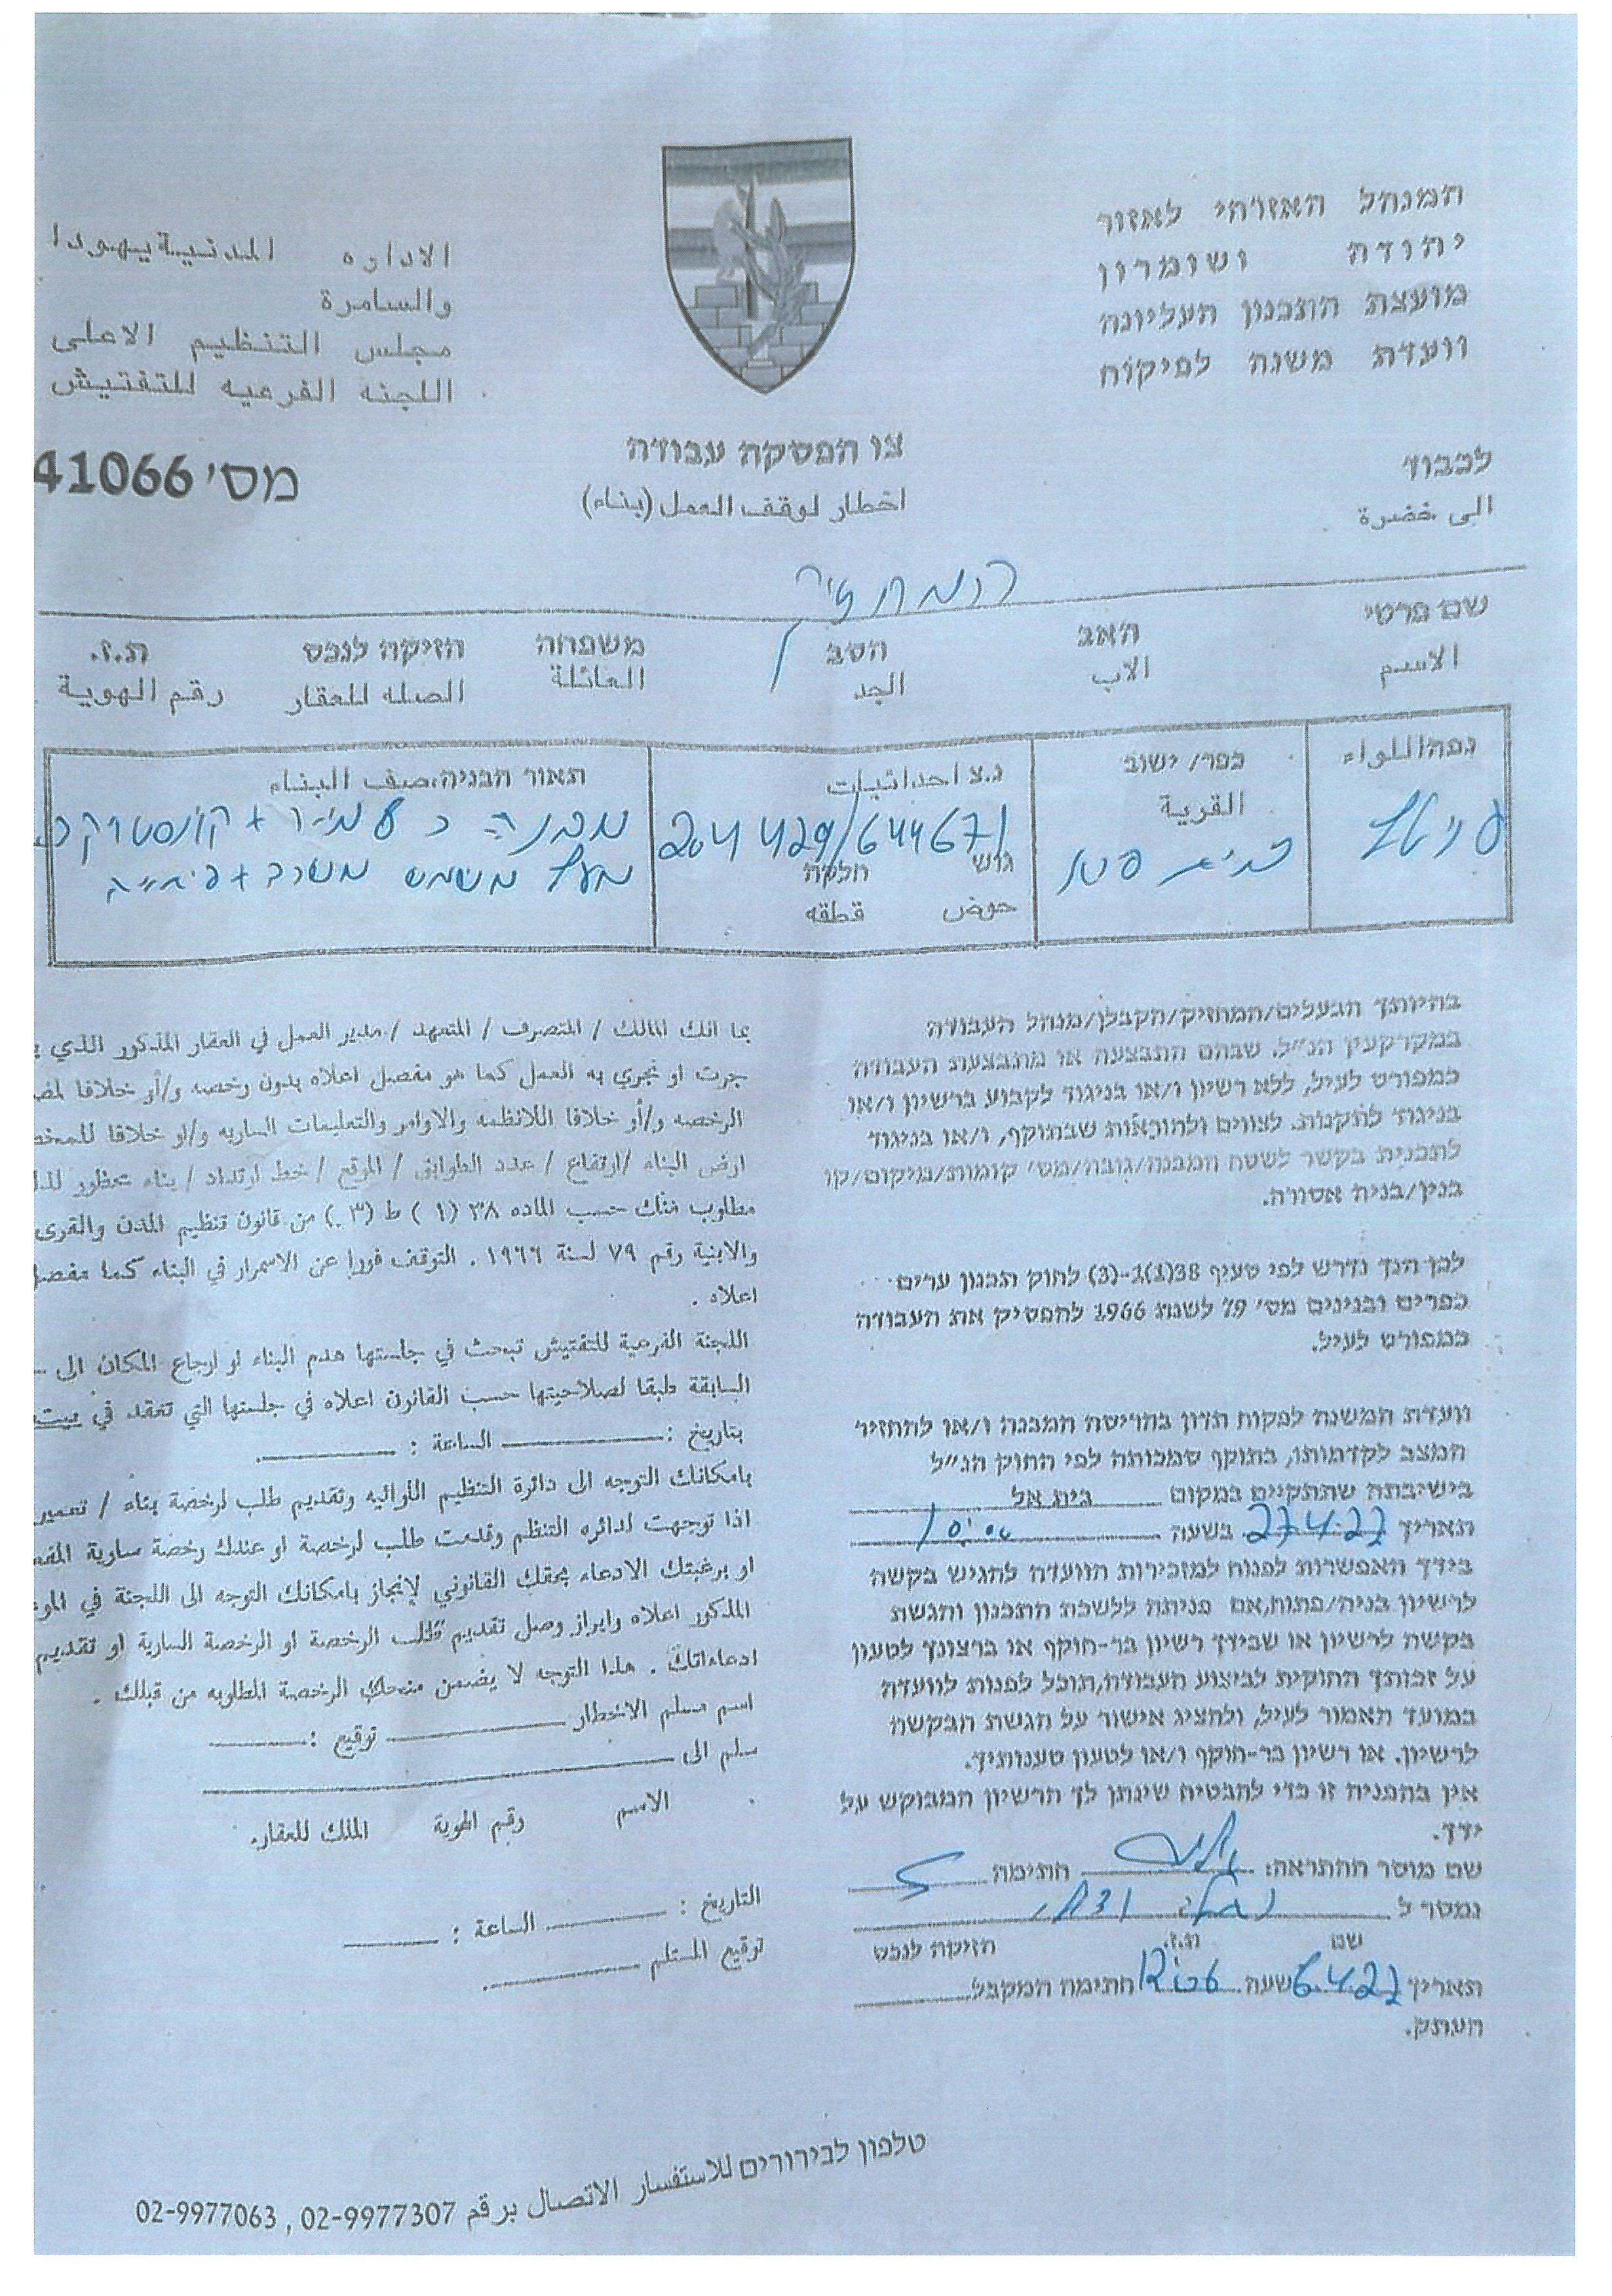 המנהל האזרחי לאזור
יהודה ושומרון
מועצת התכנון העליונה
וועדת משנה לפיקוח
الاداره المدنية يهودا
والسامرة
مجلس التنظيم الاعلى
اللجنه الفرعيه للتفتيش
צו הפסקת עבודה
اخطار لوقف العمل (بناء)
מס' 41066
לכבוד
الى حضرة
שם פרטי האב הסב משפחה הזיקה לנכס ת.ז.
الاسم الاب الجد العائلة الصله للعقار رقم الهوية
נפה اللواء
כפר/ ישוב
القرية
נ.צ احداثيات
204429/644671
גוש חלקה
حوض قطقه
תאור הבניה، صف البناء
מבנה כ
משמש
בהיותך הבעלים/המחזיק/הקבלן/מנהל העבודה
במקרקעין הנ"ל. שבהם התבצעה או מתבצעת העבודה
כמפורט לעיל, ללא רשיון ו/או בניגוד לקבוע ברשיון ו/או
בניגוד לתקנות. לצווים ולהוראות שבתוקף, ו/או בניגוד
לתכנית בקשר לשטח המבנה/גובה/מס' קומות/מיקום/קו
בנין/בניה אסורה.
לכן הנך נדרש לפי סעיף 38(1)ג-(3) לחוק תכנון ערים
כפרים ובנינים מס' 79 לשנת 1966 להפסיק את העבודה
כמפורט לעיל.
וועדת המשנה לפקוח תדון בהריסת המבנה ו/או להחזיר
המצב לקדמותו, בתוקף סמכותה לפי החוק הנ"ל
בישיבתה שתתקיים במקום בית אל
תאריך 27.4.22 בשעה
בידך האפשרות לפנות למזכירות הוועדה להגיש בקשה
לרשיון בניה/פתוח,אם פניתה ללשכת התכנון והגשת
בקשה לרשיון או שבידך רשיון בר-תוקף או ברצונך לטעון
על זכותך החוקית לביצוע העבודה,תוכל לפנות לוועדה
במועד האמור לעיל, ולהציג אישור על הגשת הבקשה
לרשיון. או רשיון בר-תוקף ו/או לטעון טענותיך.
אין בהפניה זו כדי להבטיח שינתן לך הרשיון המבוקש על
ידך.
שם מוסר ההתראה: חתימה
נמסר ל
שם ת.ז. הזיקה לנכס
תאריך 6.4.22 שעה חתימה המקבל
העתק.
بما انك المالك / المتصرف / المتعهد / مدير العمل في العقار المذكور الذي
جرت او تجري به العمل كما هو مفصل اعلاه بدون رخصه و/أو خلافا
الرخصه و/أو خلافا اللانظمه والاوامر والتعليمات الساريه و/او خلافا
ارض البناء /ارتفاع / عدد الطوابق / الموقع / خط ارتداد / بناء محظور
مطلوب منك حسب الماده ٣٨ (١ ) ط (٣.) من قانون تنظيم المدن والقرى
والابنية رقم ٧٩ لسنة ١٩٦٦ . التوقف فورا عن الاسمرار في البناء كما
اعلاه .
اللجنة الفرعية للتفتيش تبحث في جلستها هدم البناء او ارجاع المكان الى
السابقة طبقا لصلاحيتها حسب القانون اعلاه في جلستها التي تعقد في
بتاريخ : الساعة :
بامكانك التوجه الى دائرة التنظيم اللوائيه وتقديم طلب لرخصة بناء / تعمير
اذا توجهت لدائره التنظم وقدمت طلب لرخصة او عندك رخصة سارية
او برغبتك الادعاء بحقك القانوني لإنجاز بامكانك التوجه الى اللجنة في
المذكور اعلاه وابراز وصل تقديم طلب الرخصة او الرخصة السارية او تقديم
ادعاءاتك . هذا التوجه لا يضمن منحك الرخصة المطلوبه من قبلك .
اسم مسلم الاخطار توقيع :
سلم الى
الاسم رقم الهوية الملك للعقار.
التاريخ : الساعة :
توقيع المستلم
טלפון לבירורים للاستفسار الاتصال برقم 02-9977307 , 02-9977063